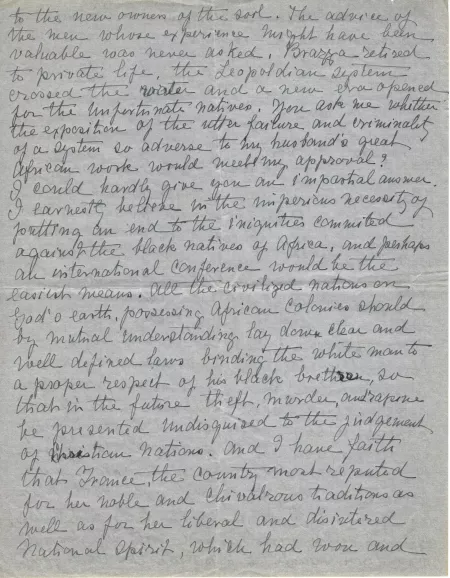 to the new owners of the soil. The advice of
the men whose experience might have been
valuable was never asked, Brazza retired
to private life, the Leopoldian system
crossed the water and a new era opened
for the unfortunate natives. You ask me whether
the exposition of the utter failure and criminality
of a system so adverse to my husband's great
African work would meet my approval?
I could hardly give you an impartial answer.
I earnestly believe in the imperious necessity of
putting an end to the iniquities commited
against the black natives of Africa, and perhaps
an international conference would be the
easiest means. All the civilized nations on
God's earth, possessing African Colonies should
by mutual understanding lay down clear and
well defined laws binding the white man to
a proper respect of his black brethren, so
that in the future theft, murder, and rapine
be presented undisguised to the judgement
of Christian Nations. And I have faith
that France, the country most reputed
for her noble and chivalrous traditions as
well as for her liberal and disinterested
National Spirit, which had won and